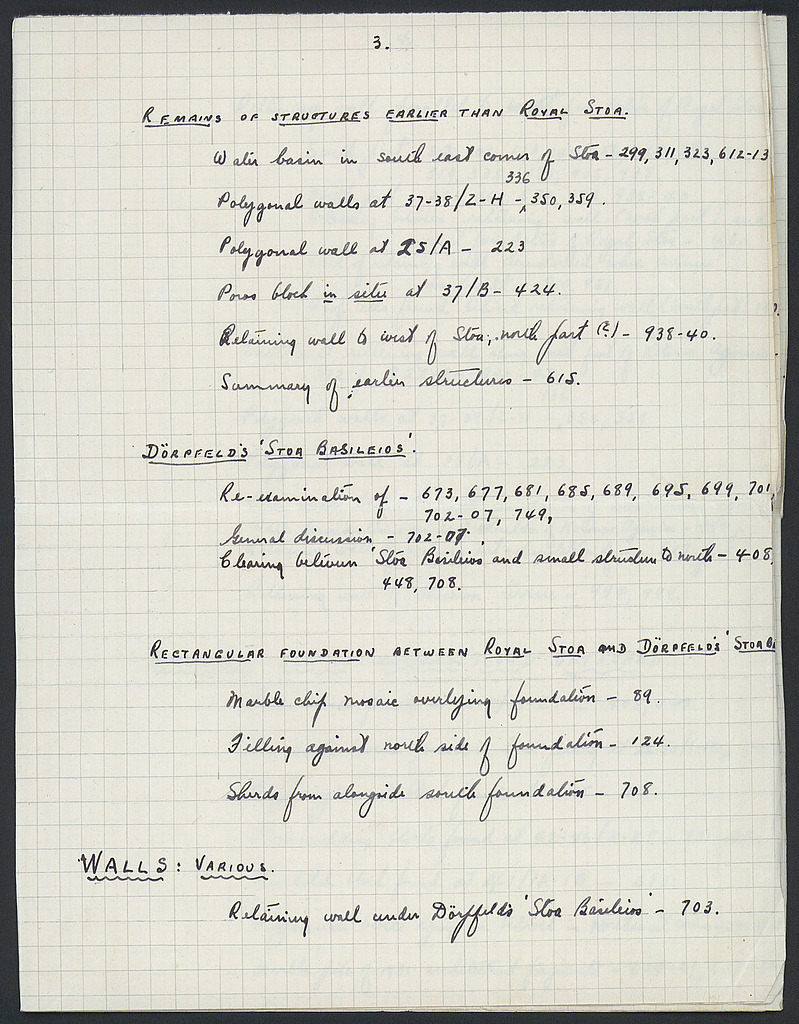 3.
REMAINS OF STRUCTURES EARLIER THAN ROYAL STOA.
Water basin in south east corner of Stoa - 299, 311, 323, 612-13
336
Polygonal walls at 37-38/Z-H - 350, 359.
Polygonal wall at 25/A - 223
Poros block in situ at 37/B - 424.
Retaining wall to west of Stoa, north part (?) - 938-40.
Summary of earlier structures - 615.
DÖRPFELD'S 'STOA BASILEIOS'.
Re-examination of - 673, 677, 681, 685, 689, 695, 699, 701,
702-07, 749,
General discussion - 702-07.
Clearing between 'Stoa Basileios and small structure to north - 408,
448, 708.
RECTANGULAR FOUNDATION BETWEEN ROYAL STOA AND DÖRPFELD'S 'STOA B
Marble chip mosaic overlying foundation - 89.
Filling against north side of foundation - 124.
Sherds from alongside south foundation - 708.
WALLS: VARIOUS.
Retaining wall under Dörpfeld's 'Stoa Basileios' - 703.